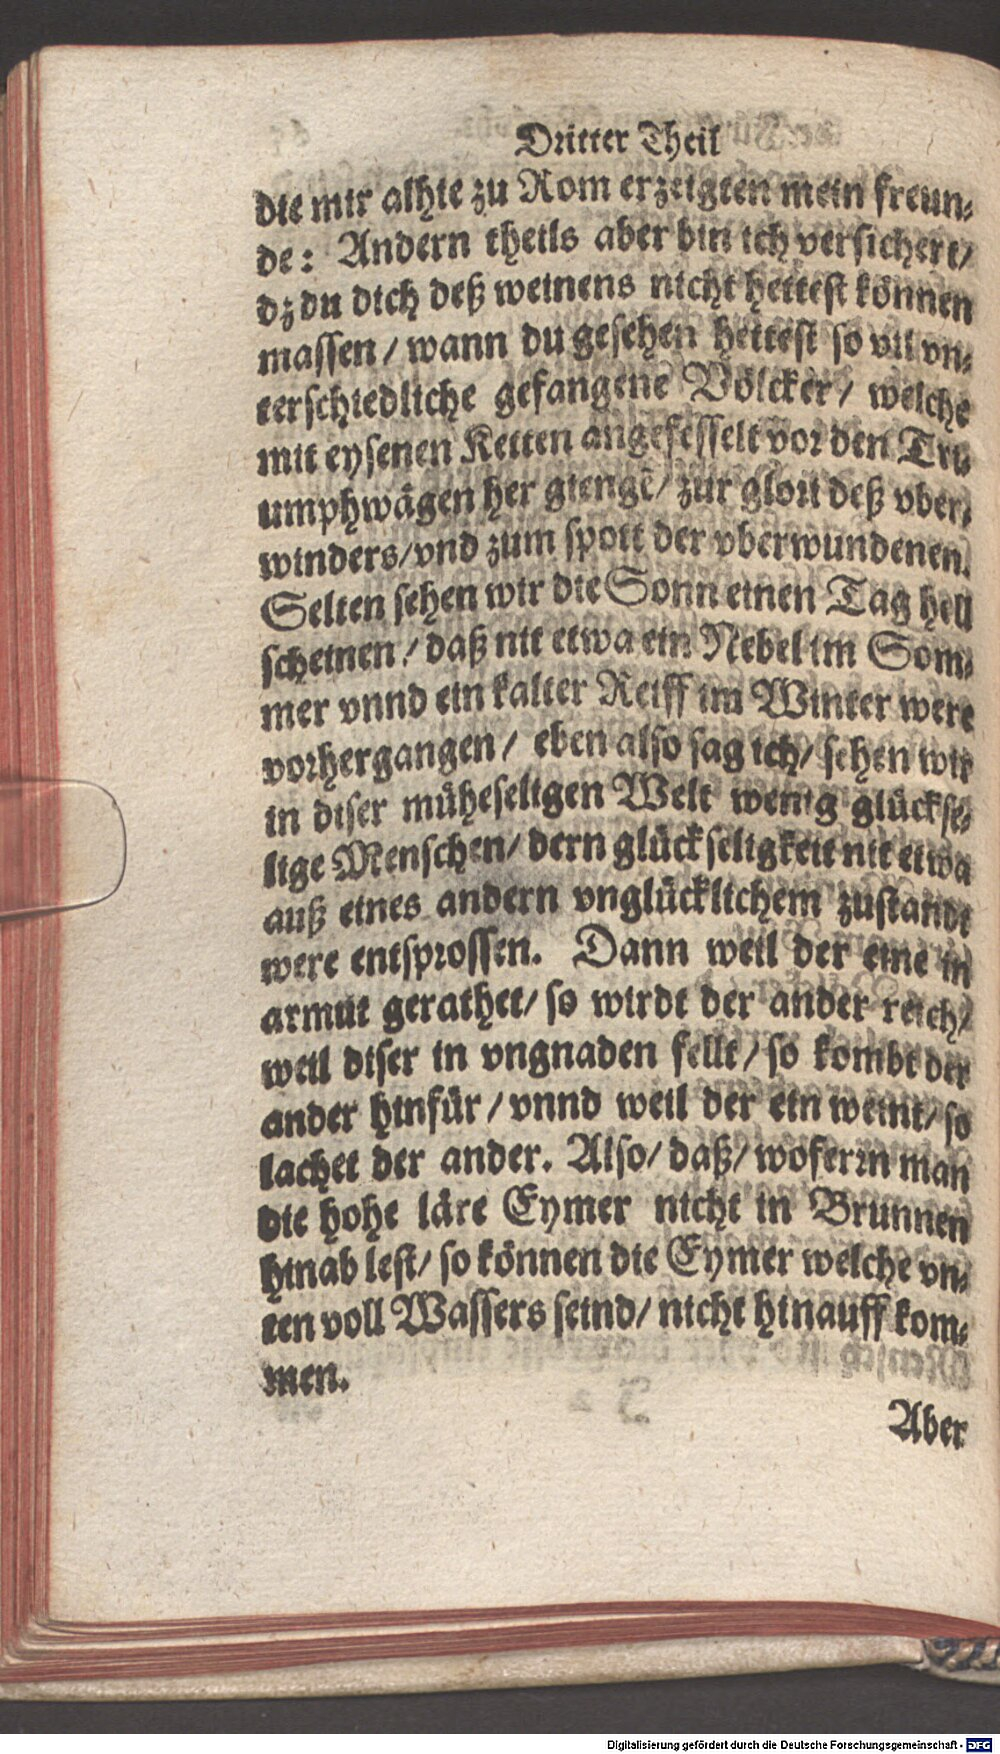 Dritter Theil
die mir alhie zu Rom erzeigten mein freun-
de: Andern theils aber bin ich versichert/
dz du dich deß weinens nicht hettest können
massen/ wann du gesehen hettest so vil vn-
terschiedliche gefangene Völcker/ welche
mit eysenen Ketten angefesselt vor den Tri-
umphwägen her giengē/ zur glori deß vber-
winders/ vnd zum spott der vberwundenen.
Selten sehen wir die Sonn einen Tag hell
scheinen/ daß nit etwa ein Nebel im Som-
mer vnnd ein kalter Reiff im Winter were
vorhergangen/ eben also sag ich/ sehen wir
in diser müheseligen Welt wenig glückse-
lige Menschen/ dern glückseligkeit nit etwa
auß eines andern vnglücklichem zustande
were entsprossen. Dann weil der eine in
armut gerathet/ so wirdt der ander reich/
weil diser in vngnaden fellt/ so kombt der
ander hinfür/ vnnd weil der ein weint/ so
lachet der ander. Also/ daß/ woferrn man
die hohe läre Eymer nicht in Brunnen
hinab lest/ so können die Eymer welche vn-
ten voll Wassers seind/ nicht hinauff kom-
men.
Aber
Digitalisierung gefördert durch die Deutsche Forschungsgemeinschaft - DFG